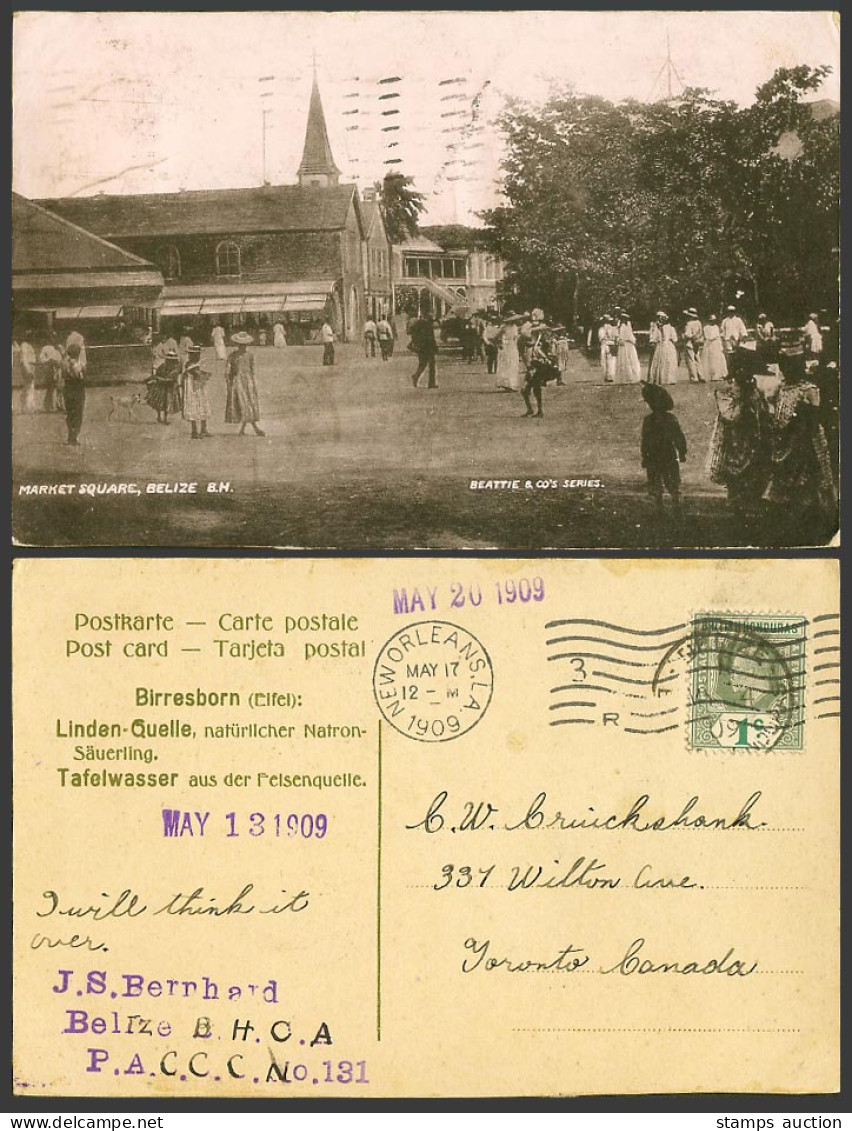 MARKET SQUARE, BELIZE B.H.
BEATTIE & CO'S SERIES.
MAY 20 1909
Postkarte — Carte postale
Post card — Tarjeta postal
Birresborn (Eifel):
Linden-Quelle, natürlicher Natron-
Säuerling.
Tafelwasser aus der Felsenquelle.
MAY 13 1909
NEW ORLEANS, LA.
MAY 17
12 - M
1909
3
R
HONDURAS
1c
C. W. Cruickshank.
337 Wilton Ave.
Toronto Canada
I will think it
over.
J.S. Bernhard
Belize B.H.C.A
P.A.C.C.C. No. 131
stamps auction